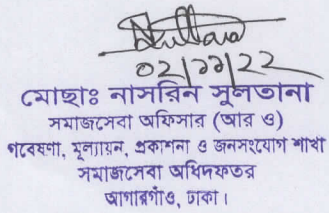 ০২/১১/২২
মোছাঃ নাসরিন সুলতানা
সমাজসেবা অফিসার (আর ও)
গবেষণা, মূল্যায়ন, প্রকাশনা ও জনসংযোগ শাখা
সমাজসেবা অধিদফতর
আগারগাঁও, ঢাকা।